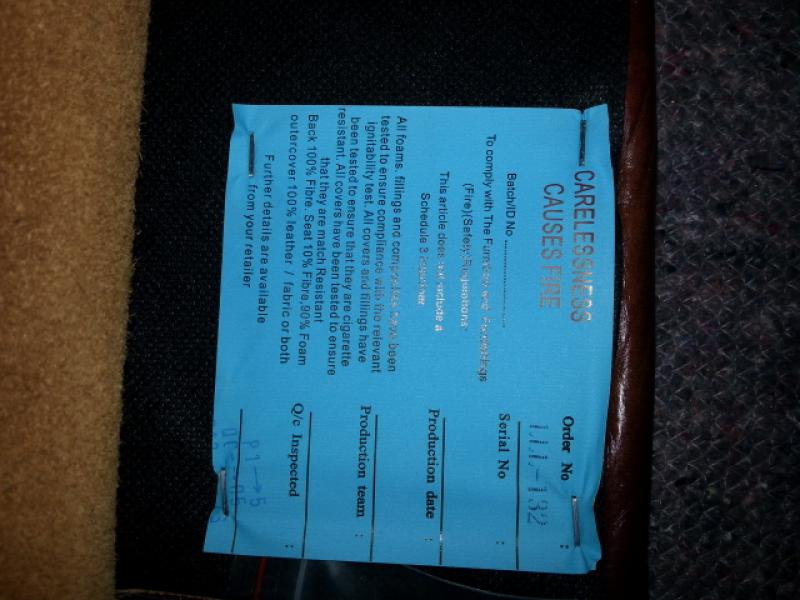 CARELESSNESS
CAUSES FIRE
Batch/ID No
To comply with The Furniture and Furnishings
(Fire)(Safety Regulations
This article does not include a
Schedule 3 interliner
All foams, fillings and composites have been
tested to ensure compliance with the relevant
ignitability test. All covers and fillings have
been tested to ensure that they are cigarette
resistant. All covers have been tested to ensure
that they are match Resistant
Back 100% Fibre. Seat 10% Fibre,90% Foam
outercover 100% leather / fabric or both
Further details are available
from your retailer
Order No :
111-132
Serial No :
Production date :
Production team :
Q/c Inspected :
P1→5